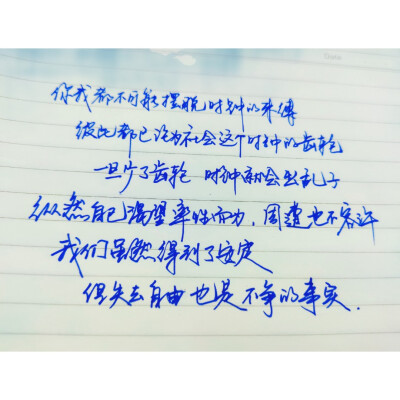 你我都不可能摆脱时钟的束缚
彼此都已沦为社会这个时钟的齿轮
一旦少了齿轮 时钟就会出乱子
纵然自己渴望率性而为,周遭也不容许
我们虽然得到了安定
但失去自由也是不争的事实.